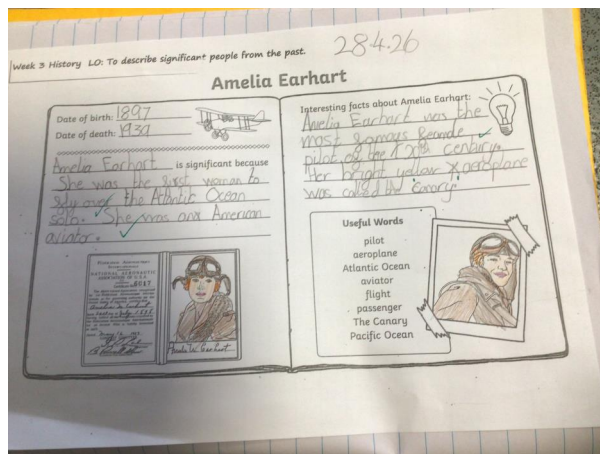 Week 3 History LO: To describe significant people from the past.
28.4.26
Amelia Earhart
Date of birth: 1897
Date of death: 1939
Amelia Earhart is significant because
She was the first woman to
fly over the Atlantic Ocean
solo. She was an American
aviator.
NATIONAL AERONAUTIC
6017
Amelia M. Earhart
Interesting facts about Amelia Earhart:
Amelia Earhart was the
most famous female
pilot of the century.
Her bright yellow aeroplane
was called the Canary.
Useful Words
pilot
aeroplane
Atlantic Ocean
aviator
flight
passenger
The Canary
Pacific Ocean